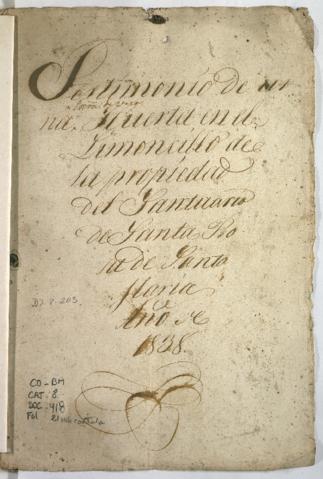 Testimonio de u
na, Huerta en el
Limoncillo de
la propiedad
del Santuario
de Santa Ro
sa de Santa
Maria
Año de
1838.
D7.8.203.
CO-BM
CAT. 8
DOC. 418
Fol